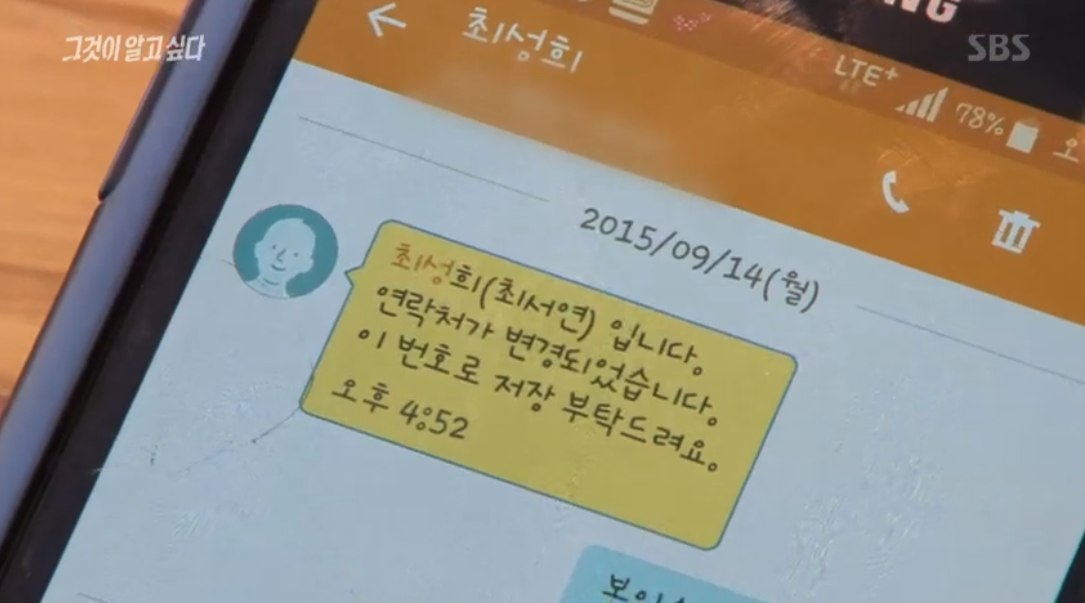 그것이 알고 싶다
SBS
NG
← 최성희
LTE+ 78% 오
2015/09/14(월)
최성희(최서연) 입니다.
연락처가 변경되었습니다.
이 번호로 저장 부탁드려요.
오후 4:52